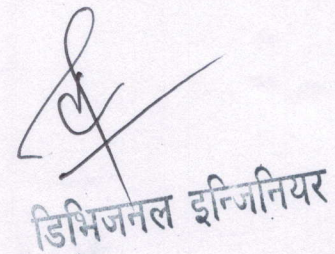 डिभिजनल इन्जिनियर